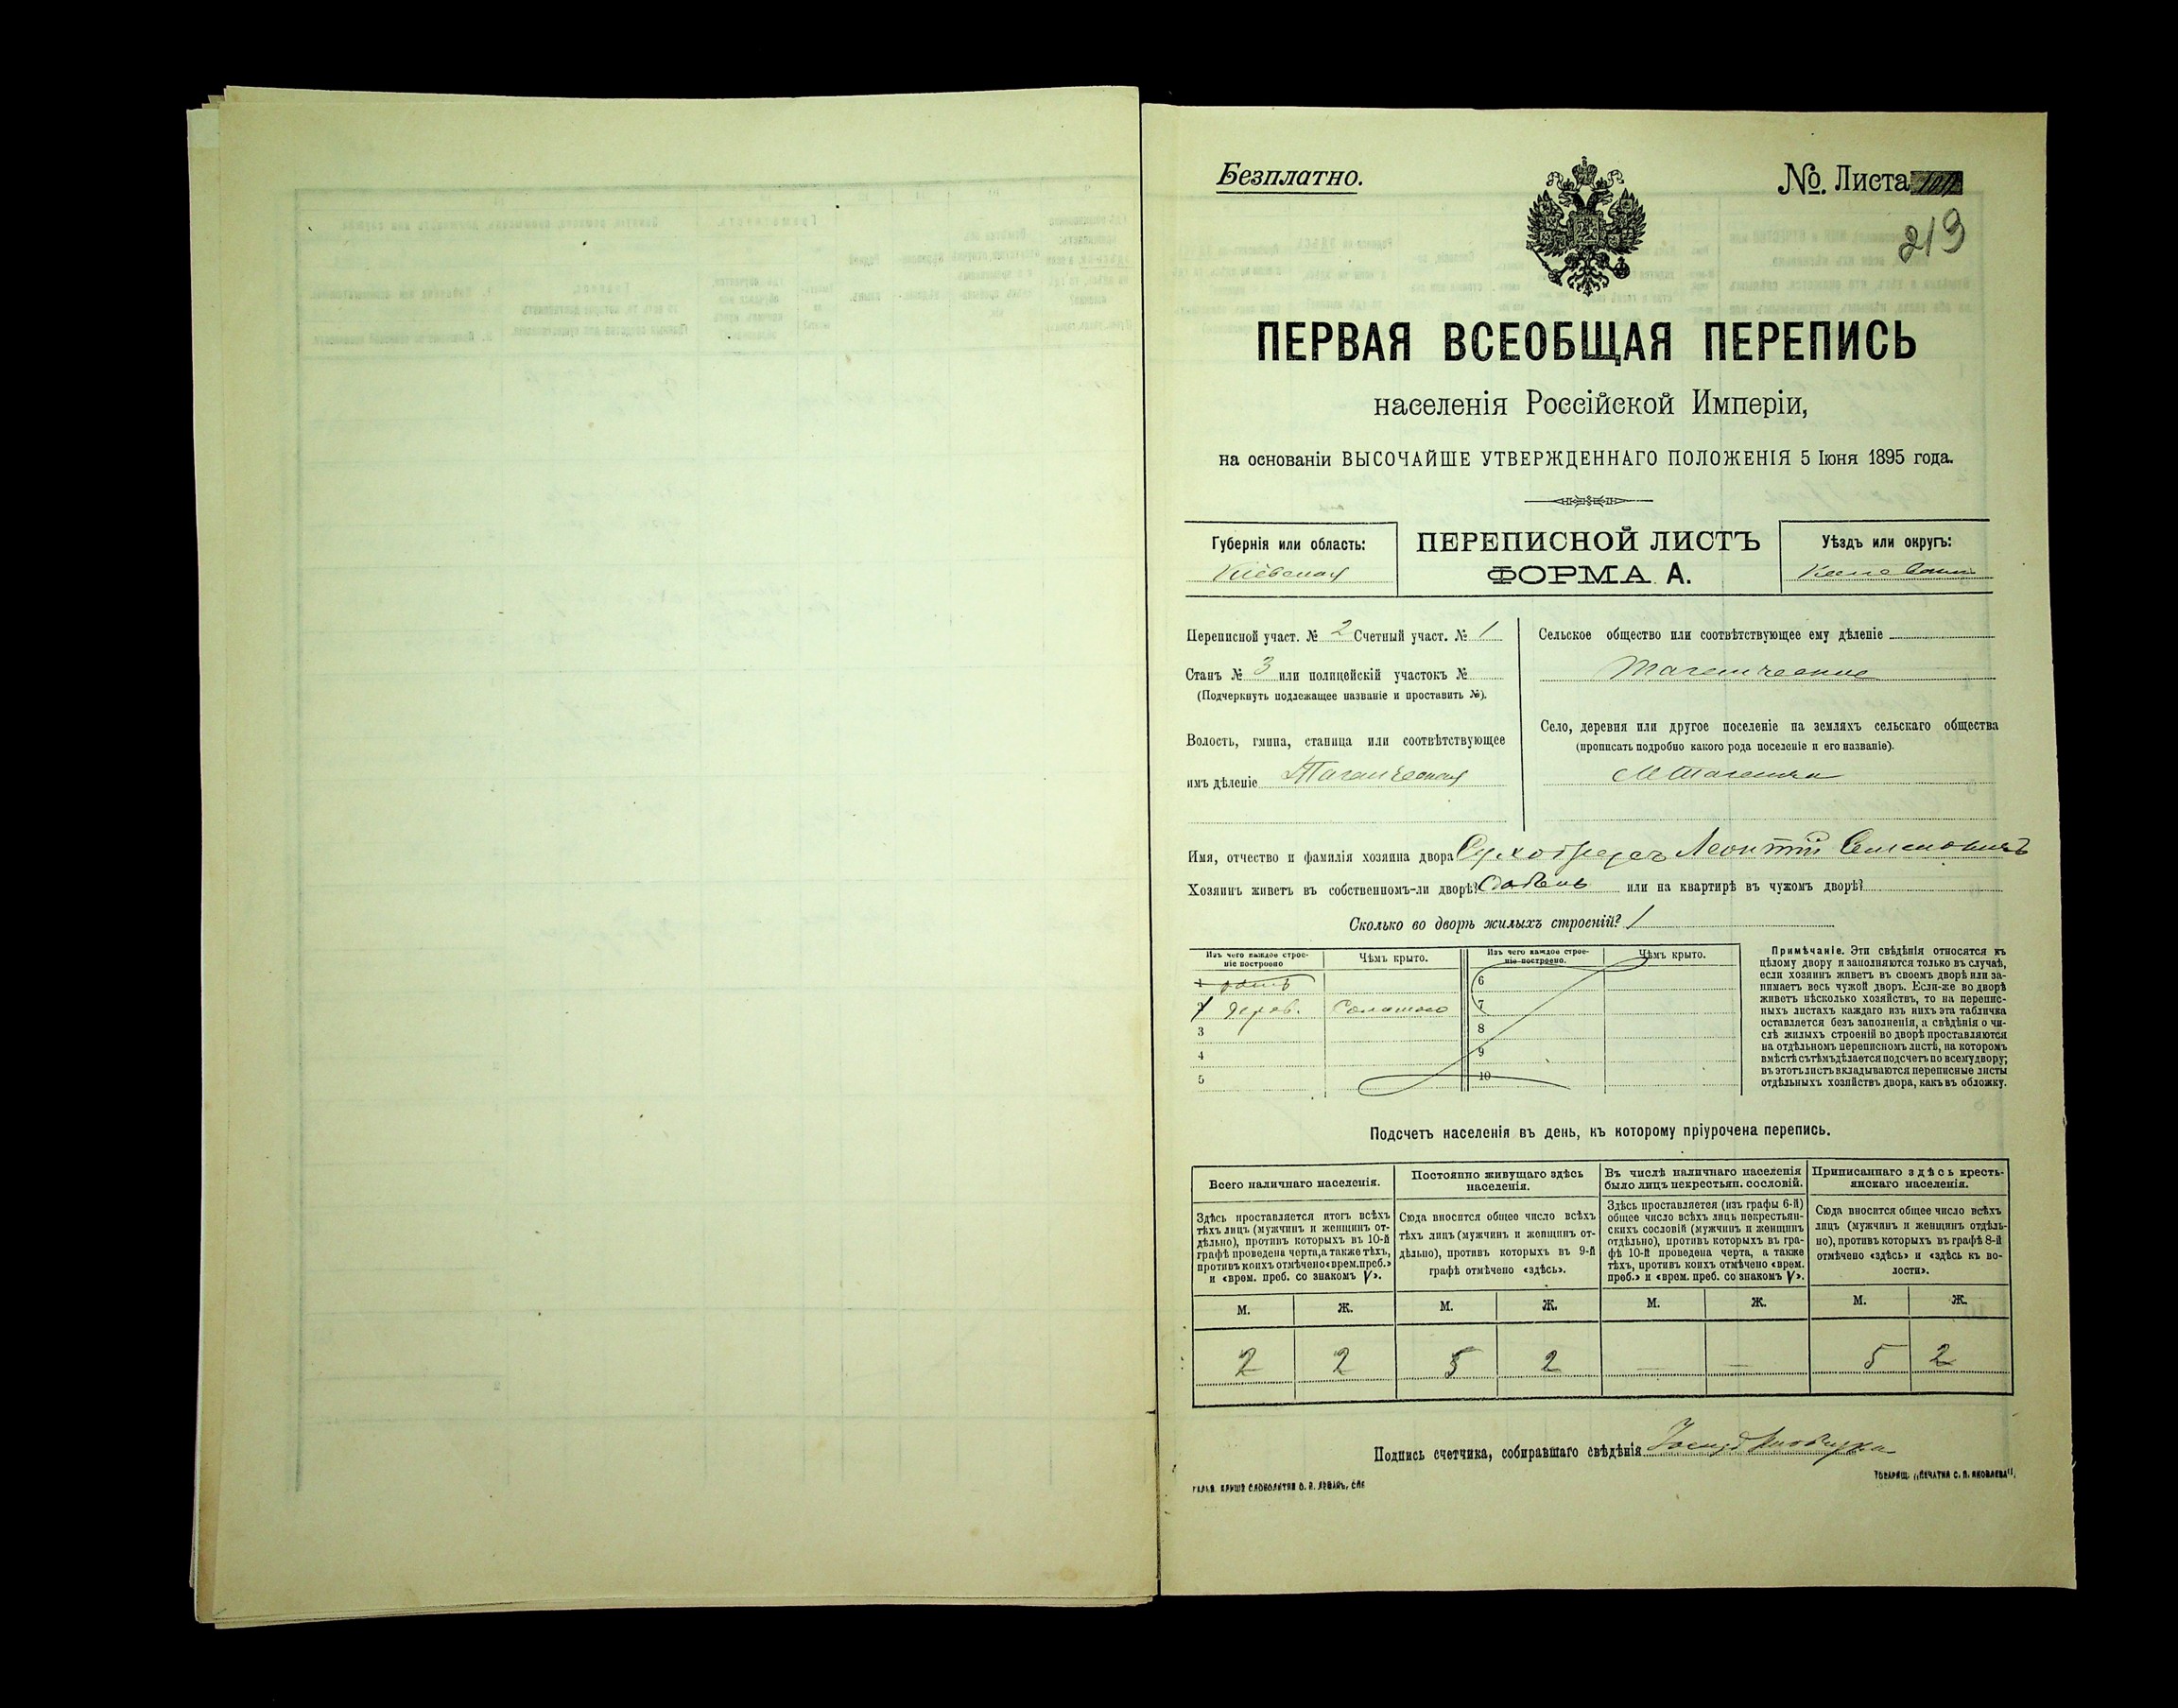 Безплатно.
№. Листа
219
ПЕРВАЯ ВСЕОБЩАЯ ПЕРЕПИСЬ
населенія Россійской Имперіи,
на основаніи ВЫСОЧАЙШЕ УТВЕРЖДЕННАГО ПОЛОЖЕНІЯ 5 Іюня 1895 года.
Губернія или область:
Кіевская
ПЕРЕПИСНОЙ ЛИСТЪ
ФОРМА А.
Уѣздъ или округъ:
Переписной участ. № 2 Счетный участ. № 1
Станъ № 3 или полицейскій участокъ №
(Подчеркнуть подлежащее названіе и проставить №).
Волость, гмина, станица или соотвѣтствующее
имъ дѣленіе
Сельское общество или соотвѣтствующее ему дѣленіе
Село, деревня или другое поселеніе на земляхъ сельскаго общества
(прописать подробно какого рода поселеніе и его названіе).
Имя, отчество и фамилія хозяина двора Леонтій Семеновичъ
Хозяинъ живетъ въ собственномъ-ли дворѣ? или на квартирѣ въ чужомъ дворѣ?
Сколько во дворѣ жилыхъ строеній? 1
Изъ чего каждое строе-
ніе построено
Чѣмъ крыто.
Изъ чего каждое строе-
ніе построено.
Чѣмъ крыто.
1
дерев. Соломою
3
4
5
6
7
8
9
10
Примѣчаніе. Эти свѣдѣнія относятся къ
цѣлому двору и заполняются только въ случаѣ,
если хозяинъ живетъ въ своемъ дворѣ или за-
нимаетъ весь чужой дворъ. Если-же во дворѣ
живетъ нѣсколько хозяйствъ, то на перепис-
ныхъ листахъ каждаго изъ нихъ эта табличка
оставляется безъ заполненія, а свѣдѣнія о чи-
слѣ жилыхъ строеній во дворѣ проставляются
на отдѣльномъ переписномъ листѣ, на которомъ
вмѣстѣ съ тѣмъ дѣлается подсчетъ по всему двору;
въ этотъ листъ вкладываются переписные листы
отдѣльныхъ хозяйствъ двора, какъ въ обложку.
Подсчетъ населенія въ день, къ которому пріурочена перепись.
Всего наличнаго населенія.
Здѣсь проставляется итогъ всѣхъ
тѣхъ лицъ (мужчинъ и женщинъ от-
дѣльно), противъ которыхъ въ 10-й
графѣ проведена черта, а также тѣхъ,
противъ коихъ отмѣчено «врем. преб.»
и «врем. преб. со знакомъ V».
Постоянно живущаго здѣсь
населенія.
Сюда вносится общее число всѣхъ
тѣхъ лицъ (мужчинъ и женщинъ от-
дѣльно), противъ которыхъ въ 9-й
графѣ отмѣчено «здѣсь».
Въ числѣ наличнаго населенія
было лицъ некрестьян. сословій.
Здѣсь проставляется (изъ графы 6-й)
общее число всѣхъ лицъ некрестьян-
скихъ сословій (мужчинъ и женщинъ
отдѣльно), противъ которыхъ въ гра-
фѣ 10-й проведена черта, а также
тѣхъ, противъ коихъ отмѣчено «врем.
преб.» и «врем. преб. со знакомъ V».
Приписаннаго здѣсь кресть-
янскаго населенія.
Сюда вносится общее число всѣхъ
лицъ (мужчинъ и женщинъ отдѣль-
но), противъ которыхъ въ графѣ 8-й
отмѣчено «здѣсь» и «здѣсь къ во-
лости».
М. Ж. М. Ж. М. Ж. М. Ж.
2 2 5 2 — — 5 2
Подпись счетчика, собиравшаго свѣдѣнія
ТОВАРИЩ. „ПЕЧАТНЯ С. П. ЯКОВЛЕВА“.